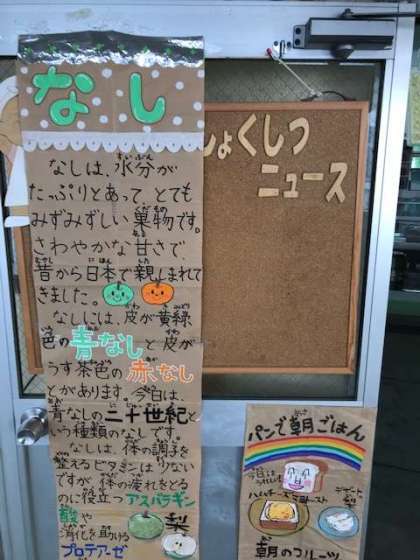 なし
なしは、水分が
たっぷりとあって、とても
みずみずしい果物です。
さわやかな甘さで
昔から日本で親しまれて
きました。
なしには、皮が黄緑
色の青なしと皮が
うす茶色の赤なし
とがあります。今日は、
青なしの二十世紀と
いう種類のなしです。
なしは、体の調子を
整えるビタミンは少ない
ですが、体の疲れをとる
のに役立つアスパラギン
酸や
消化を助ける
プロテアーゼ
梨
しょくしつ
ニュース
パンで朝ごはん
ハムチーズ
トースト
朝のフルーツ